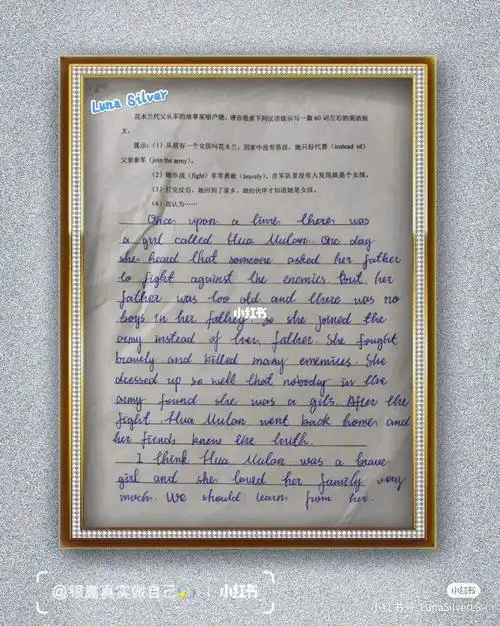 Luna Silver
花木兰代父从军的故事家喻户晓。请你根据下列汉语提示写一篇 60 词左右的英语短
文。
提示:(1) 从前有一个女孩叫花木兰,国家中没有男孩,她只好代替 (instead of)
父亲参军 (join the army)。
(2) 她作战 (fight) 非常勇敢 (bravely),在军队里没有人发现她是个女孩。
(3) 打完仗后,她回到了家乡,她的伙伴才知道她是女孩。
(4) 我认为……
Once upon a time, there was
a girl called Hua Mulan. One day
she heard that someone asked her father
to fight against the enemies. But her
father was too old and there was no
boys in her family. So she joined the
army instead of her father. She fought
bravely and killed many enemies. She
dressed up so well that nobody in the
army found she was a girls. After the
fight, Hua Mulan went back home, and
her fiends knew the truth.
I think Hua Mulan was a brave
girl and she loved her family very
much. We should learn from her.
小红书
@银露真实做自己 | 小红书
小红书
小红书号: LunaSilverLS